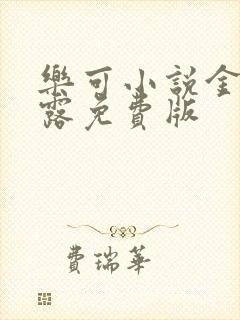 樂可小說金
露免費版
費瑞華